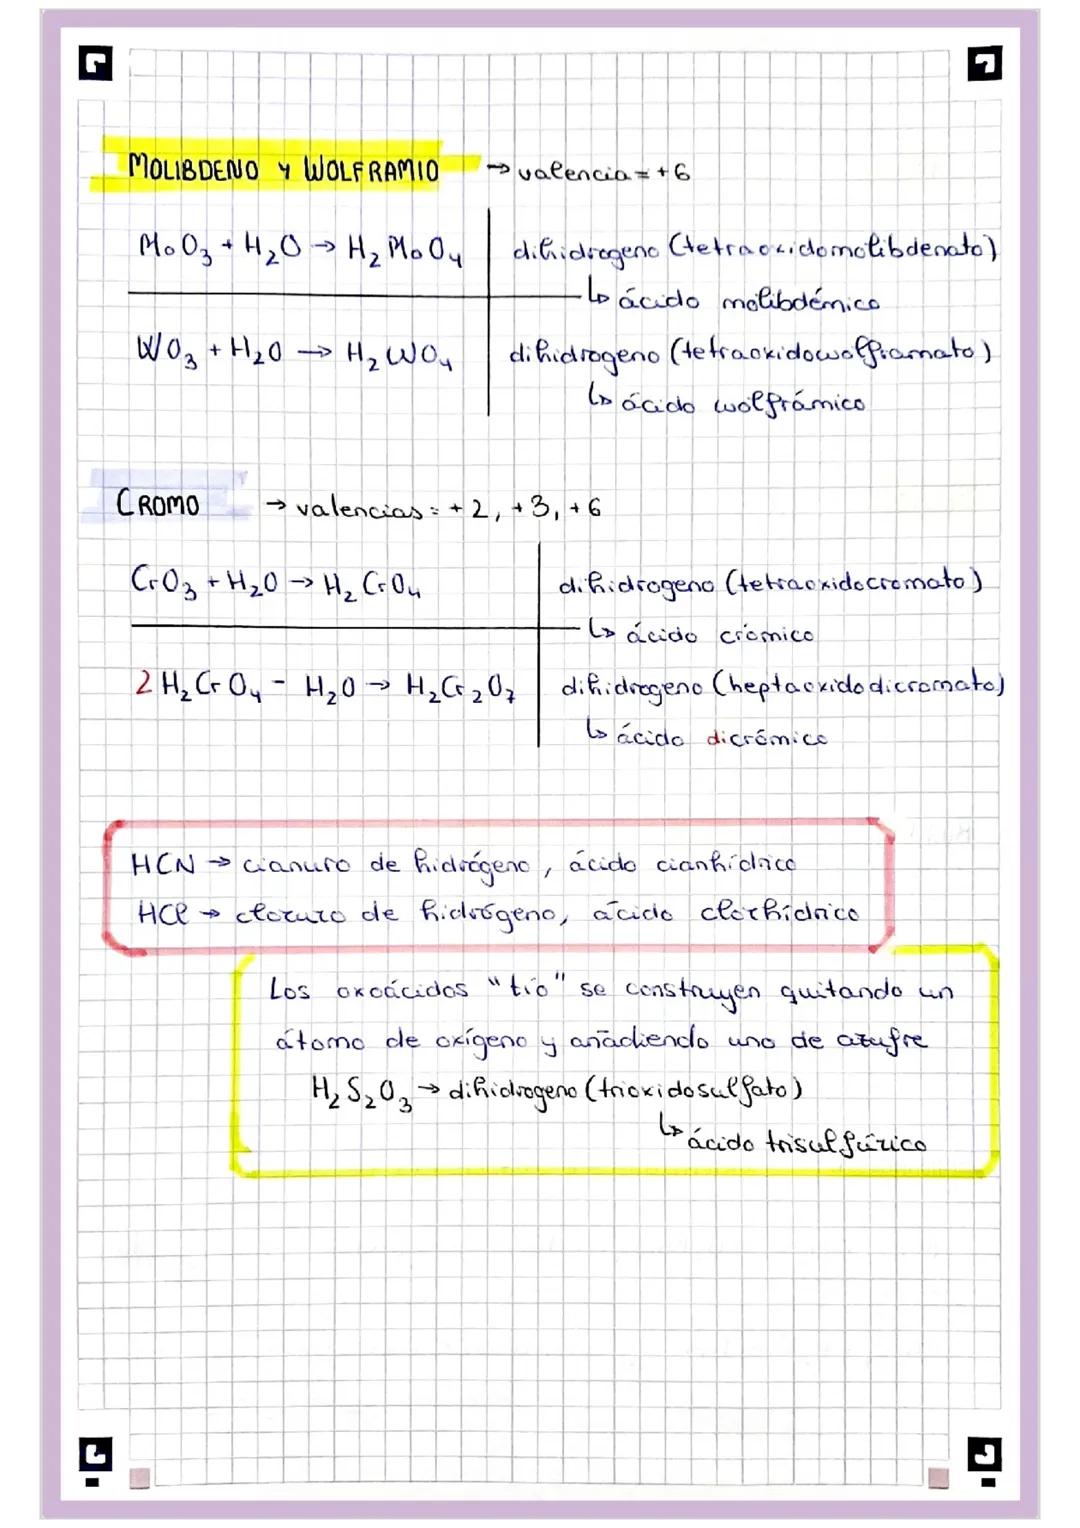 MOLIBDENO Y WOLFRAMIO → valencia = +6
MoO₃ + H₂O → H₂MoO₄ dihidrogeno (tetraoxidomolibdenato)
↳ ácido molibdémico
WO₃ + H₂O → H₂WO₄ dihidrogeno (tetraoxidowolframato)
↳ ácido wolfrámico
CROMO → valencias = +2, +3, +6
CrO₃ + H₂O → H₂CrO₄ dihidrogeno (tetraoxidocromato)
↳ ácido crómico
2 H₂CrO₄ - H₂O → H₂Cr₂O₇ dihidrogeno (heptaoxidodicromato)
↳ ácido dicrómico
HCN → cianuro de hidrógeno, ácido cianhídrico
HCl → cloruro de hidrógeno, ácido clorhídrico
Los oxoácidos "tío" se construyen quitando un
átomo de oxígeno y añadiendo uno de azufre
H₂S₂O₃ → dihidrogeno (trioxidosulfato)
↳ ácido trisulfúrico